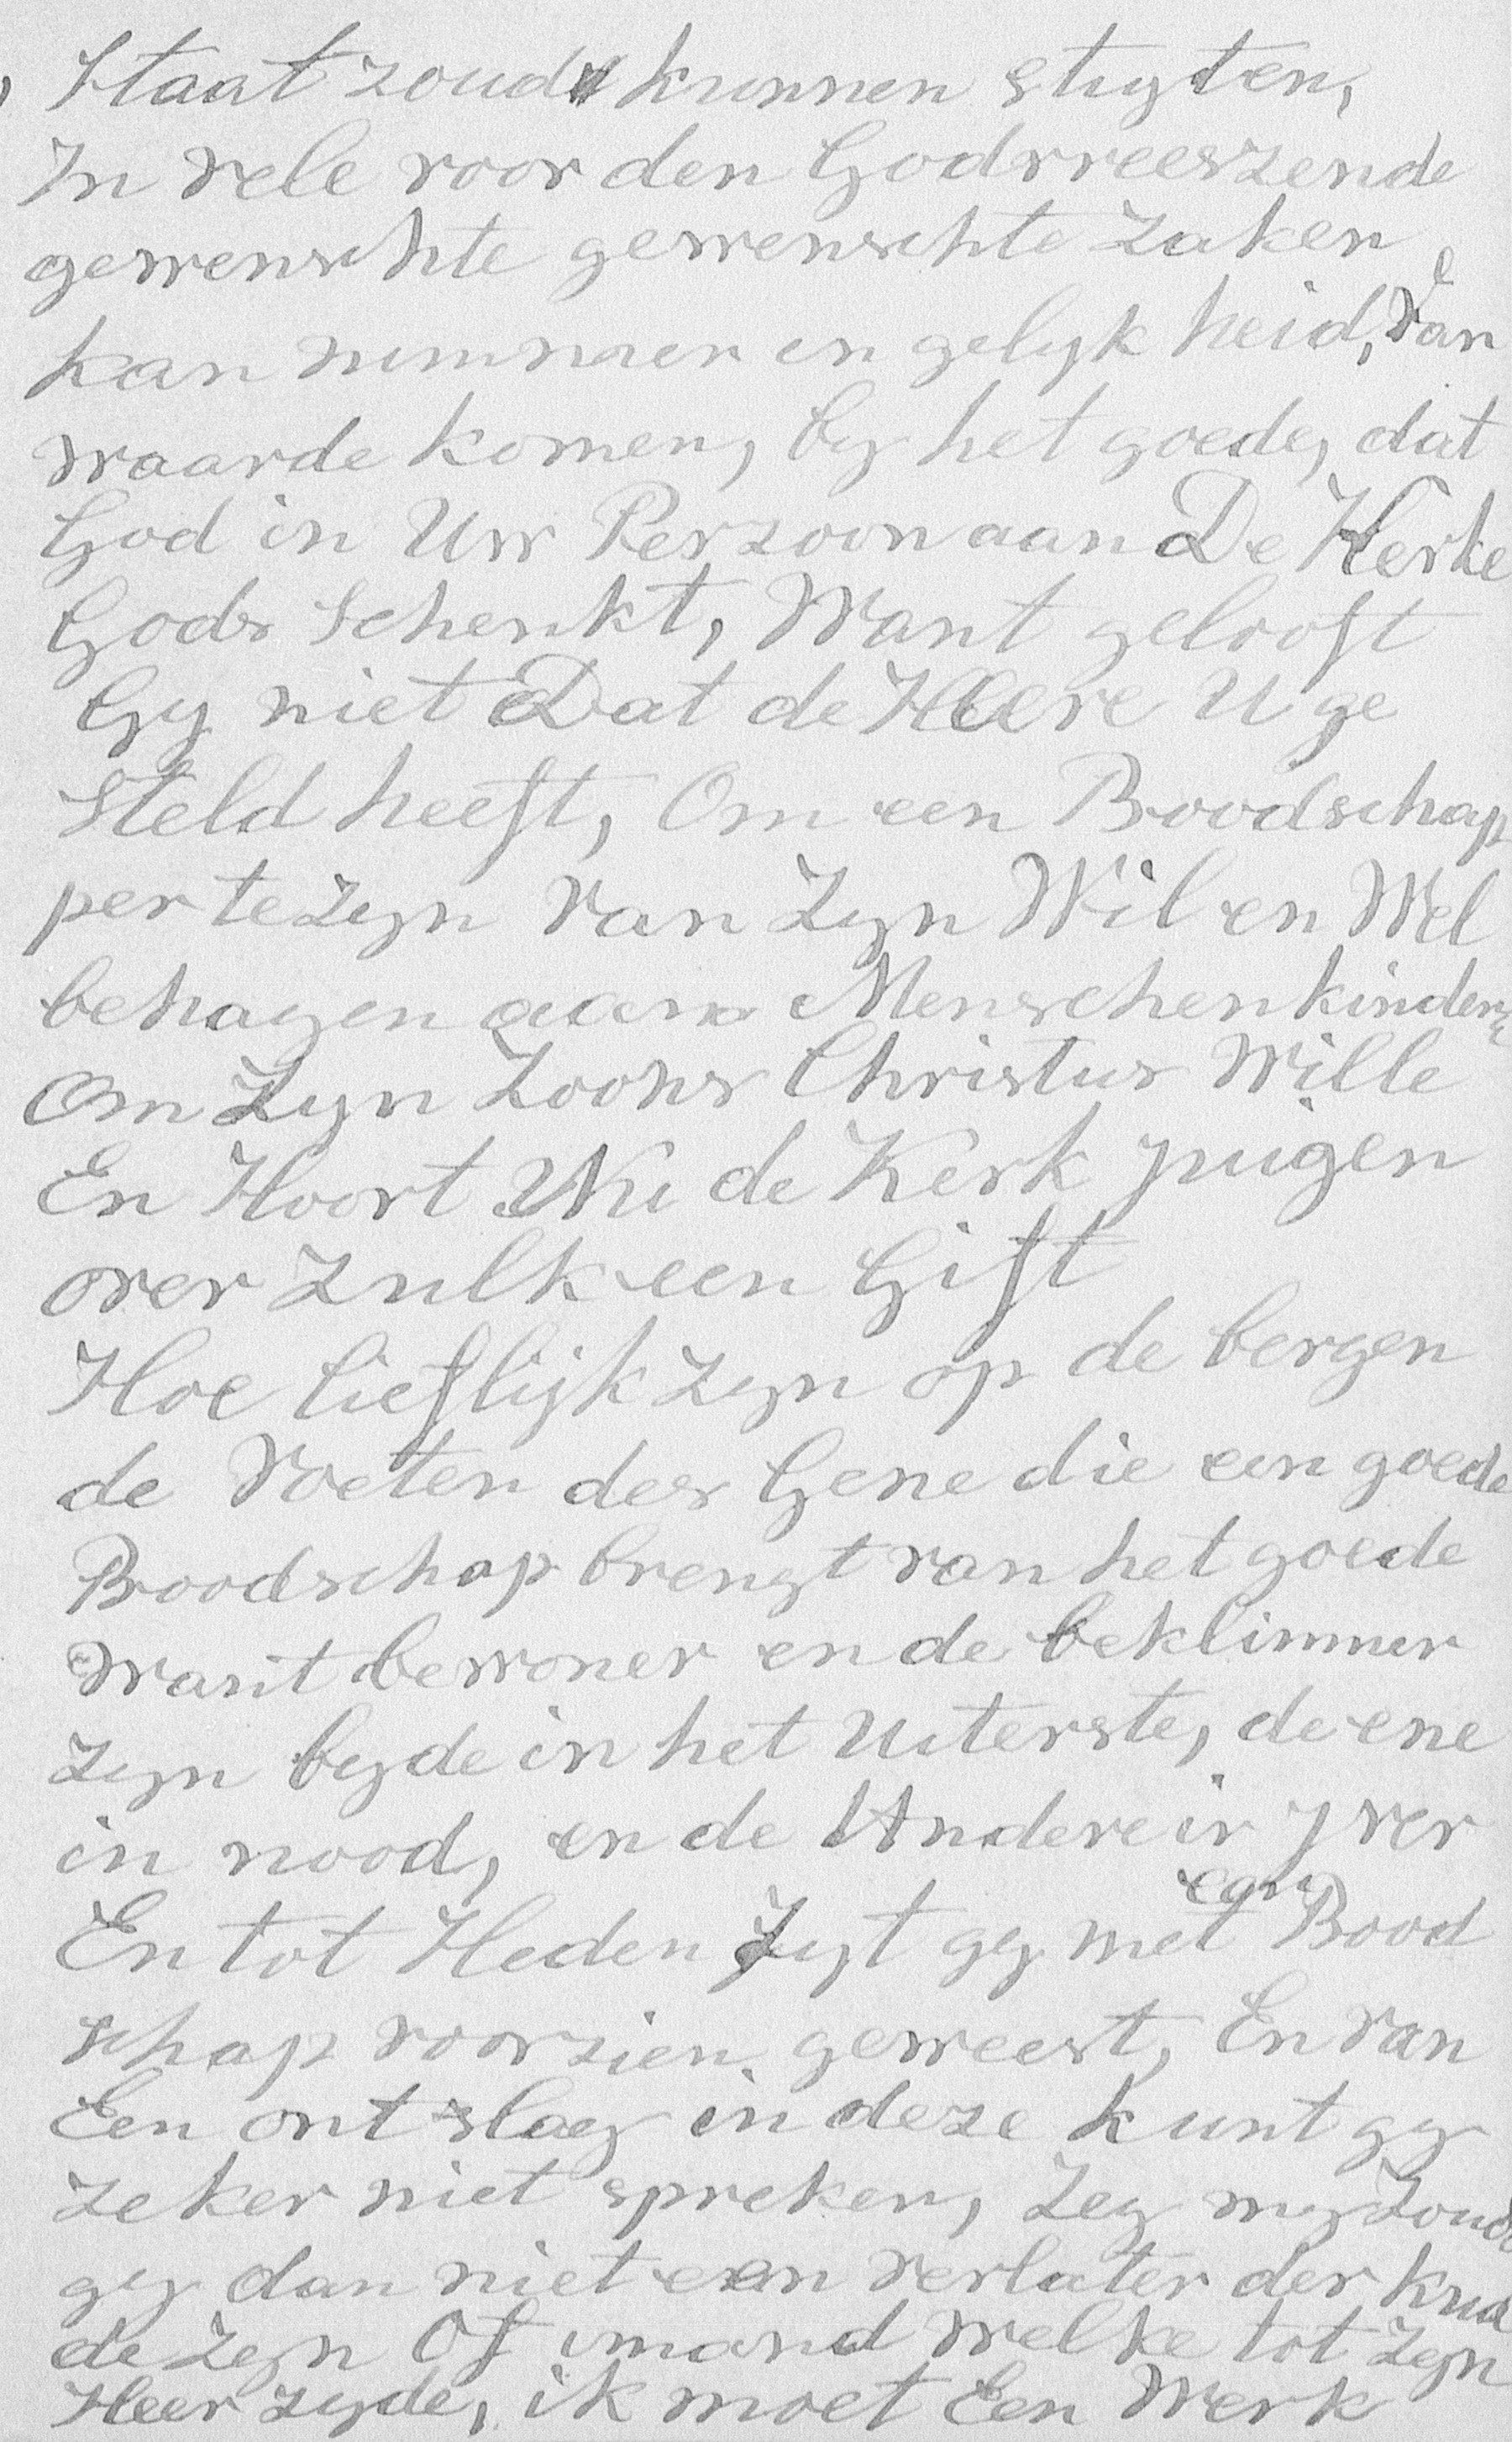 Staat zoude kunnen stigten,
In vele voor den Godvreeszende
gewenschte gewenschte zaken
kan nimmer en gelyk heid, van
waarde komen, by het goede, dat
God in Uw Perzoon aan De Kerke
Gods schenkt, Want gelooft
Gy niet Dat de Heere U ge
steld heeft, Om een Boodschap
per te zyn van Zyn Wil en Wel
behagen aan Menschenkinders
Om Zyn Zoons Christus Wille
En Hoort de Kerk juigen
over zulk een Gift
Hoe lieflijk zyn op de bergen
de Voeten des Gene die een goede
Boodschap brengt van het goede
want bewoner en de beklimmer
zyn byde in het Uiterste, de ene
in nood, en de Andere in yver
En tot Heden Zyt gy met een Bood
schap voorzien geweest, En van
Een ontslag in deze kunt gy
zeker niet spreken, Zeg my Zoude
gy dan niet een verlater der kud
de zyn Of imand welke tot zyn
Heer zyde, ik moet Een Werk